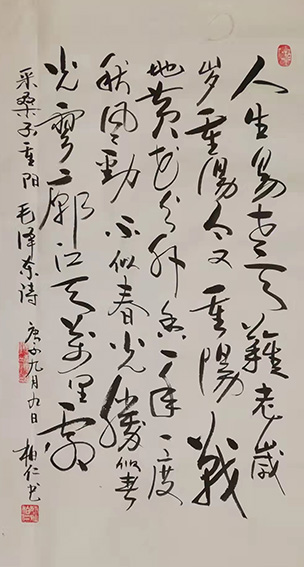 人生易老天難老歲
岁重陽今又重陽戰
地黄花分外香一年一度
秋风勁不似春光勝似春
光寥廓江天萬里霜
采桑子重阳 毛泽东诗 庚子九月九日 柏仁书